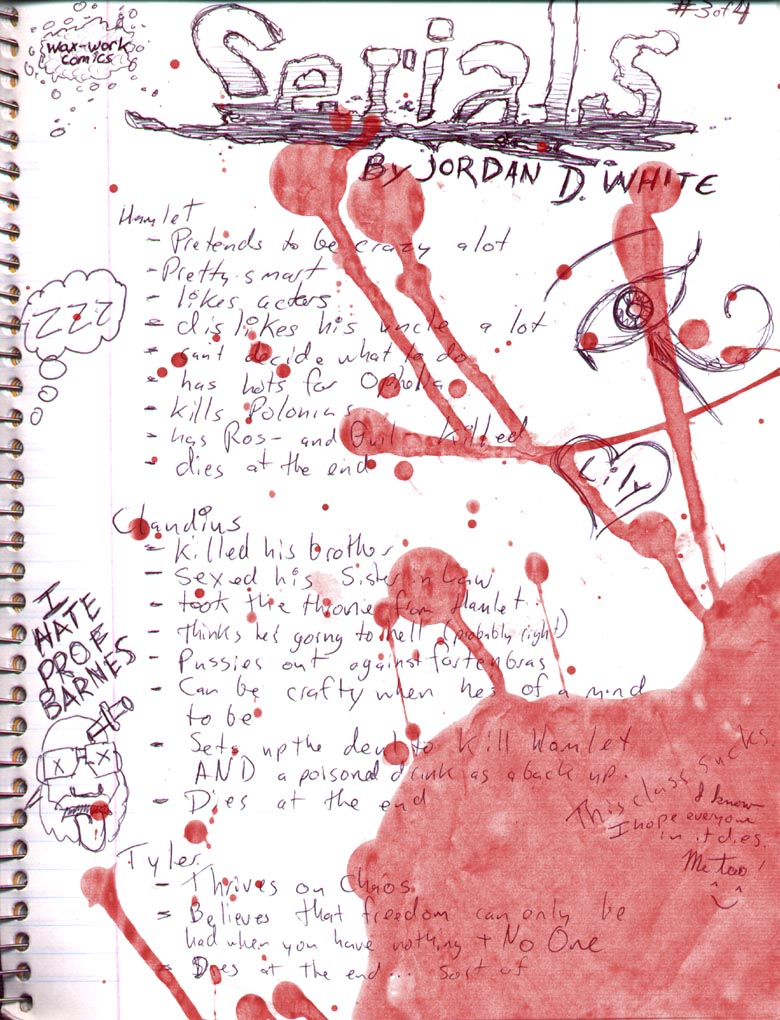 #3 of 4
wax-work
comics
Serials
By JORDAN D. WHITE
Hamlet
- Pretends to be crazy alot
- Pretty smart
- likes actors
- dislikes his uncle a lot
- can't decide what to do
- has hots for Ophelia
- kills Polonias
- has Ros- and Guil- killed
- dies at the end
ZZZ
Lily
Claudius
- Killed his brother
- Sexed his Sister in law
- took the throne from Hamlet
- thinks he's going to hell (probably right)
- Pussies out against fortenbras
- Can be crafty when hes of a mind
to be
- Sets up the duel to Kill Hamlet
AND a poisoned drink as a back up.
- Dies at the end
I
HATE
PROF
BARNES
X X
This class sucks
I know
I hope everyone
in it dies.
Me too!
Tyler
- Thrives on Chaos
- Believes that freedom can only be
had when you have nothing + No One
- Dies at the end... sort of